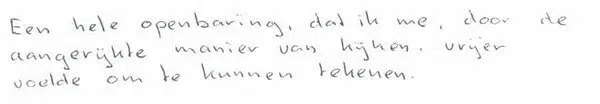 Een hele openbaring, dat ik me, door de
aangerijkte manier van kijken, vrijer
voelde om te kunnen tekenen.